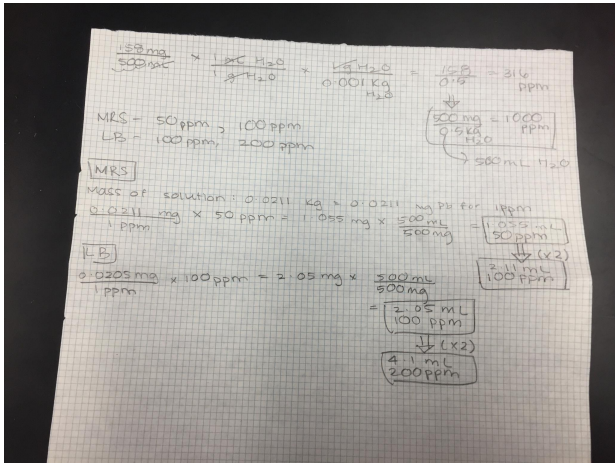 158 mg / 500 mL × 1 mL H2O / 1 g H2O × 1 g H2O / 0.001 kg H2O = 158 / 0.5 = 316 ppm
500 mg / 0.5 kg H2O = 1000 ppm
→ 500 mL H2O
MRS - 50 ppm, 100 ppm
LB - 100 ppm, 200 ppm
MRS
Mass of solution: 0.0211 kg = 0.0211 mg Pb for 1ppm
0.0211 mg / 1 ppm × 50 ppm = 1.055 mg × 500 mL / 500 mg = 1.055 mL 50 ppm
(×2)
2.11 mL 100 ppm
LB
0.0205 mg / 1 ppm × 100 ppm = 2.05 mg × 500 mL / 500 mg
= 2.05 mL 100 ppm
(×2)
4.1 mL 200 ppm